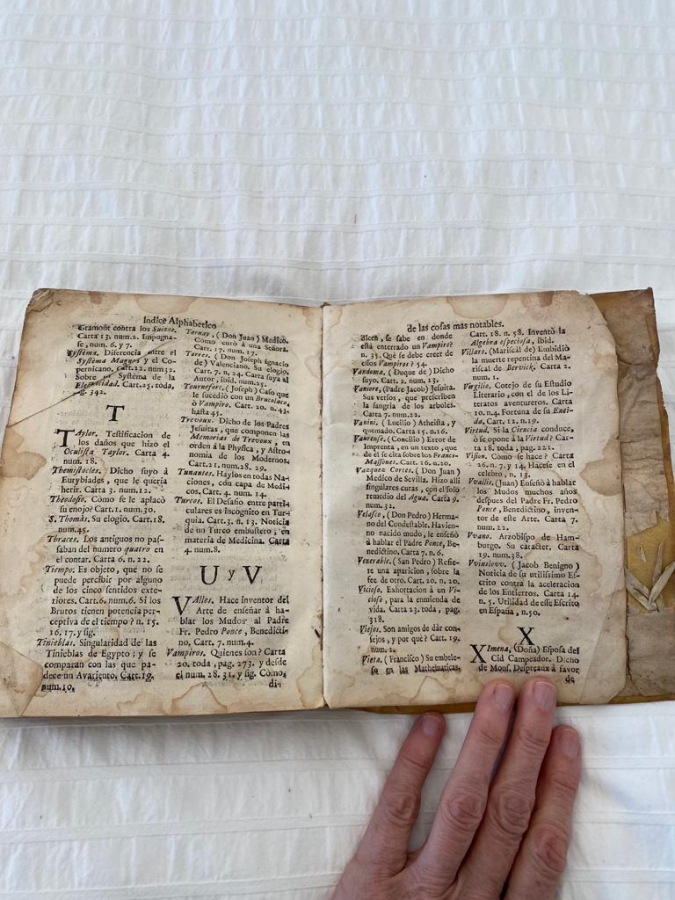 Indice Alphabetico
Gramont contra los Suizos.
Carta 13. num. 2. Impugna-
se, num. 6. y 7.
Systéma. Diferencia entre el
Systéma Magno y el Co-
pernicano. Cart.22. num 32.
Sobre un Systéma de la
Electricidad. Cart.25. toda,
pag. 392.
T
TAylor. Testificacion de
los daños que hizo el
Oculista Taylor. Carta 4.
num. 28.
Themistocles. Dicho suyo à
Eurybiades, que le queria
herir. Carta 3. num. 12.
Theodosio. Còmo se le aplacò
su enojo? Cart. 1. num. 30.
S. Thomàs, Su elogio. Cart. 18.
num. 45.
Thraces. Los antiguos no pas-
saban del numero quatro en
el contar. Carta 6. n. 22.
Tiempo. Es objeto, que no se
puede percibir por alguno
de los cinco sentidos exte-
riores. Cart.6. num.6. Si los
Brutos tienen potencia per-
ceptiva de el tiempo? n. 15.
16. 17. y sig.
Tinieblas. Singularidad de las
Tinieblas de Egypto: y se
comparan con las que pa-
dece un Avariento. Cart.19.
num.10.
Tornay, (Don Juan) Medico.
Còmo curò à una Señora.
Cart. 17. num. 17.
Torres, (Don Joseph Ignacio
de) Valenciano. Su elogio.
Cart. 7. n. 24. Carta suya al
Autor, ibid. num.25.
Tournefort, (Joseph) Caso que
le sucedió con un Brucolaco,
ò Vampiro. Cart. 20. n. 42.
hasta 45.
Trevoux. Dicho de los Padres
Jesuitas, que componen las
Memorias de Trevoux, en
orden à la Physica, y Astro-
nomia de los Modernos.
Cart. 21. num. 28. 29.
Tunantes. Haylos en todas Na-
ciones, con capa de Medi-
cos. Cart. 4. num. 14.
Turcos. El Desafio entre parti-
culares es incognito en Tur-
quia. Cart. 3. n. 13. Noticia
de un Turco embustero, en
materia de Medicina. Carta
4. num. 8.
U y V
VAlles. Hace inventor del
Arte de enseñar à ha-
blar los Mudos al Padre
Fr. Pedro Ponce, Benedicti-
no, Cart. 7. num. 4.
Vampiros. Quienes son? Carta
20. toda, pag. 273. y desde
el num. 28. 31. y sig. Còmo,
di-
de las cosas mas notables.
dicen, se sabe en donde
està enterrado un Vampiro?
n. 35. Què se debe creer de
essos Vampiros? 54.
Vandoma, (Duque de) Dicho
suyo. Cart. 2. num. 13.
Vaniere, (Padre Jacob) Jesuita.
Sus versos, que prescriben
la sangria de los arboles.
Carta 7. num. 22.
Vanini. (Lucilio) Atheista, y
quemado. Carta 15. n. 16.
Vaurense. (Concilio) Error de
Imprenta, en un texto, que
de èl se cita sobre los Franes-
Massones. Cart. 16. n. 10.
Vazquez Cortès. (Don Juan)
Medico de Sevilla. Hizo alli
singulares curas, con el solo
remedio del Agua. Carta 9.
num. 32.
Velasco, (Don Pedro) Herma-
no del Condestable. Havien-
no nacido mudo, le enseñò
à hablar el Padre Ponce, Be-
nedictino. Cart. 7. n. 6.
Venerable. (San Pedro) Refie-
re una aparicion, sobre la
fee de otro. Cart. 20. n. 20.
Vicioso. Exhortacion à un Vi-
cioso, para la enmienda de
vida. Carta 23. toda, pag.
318.
Viejos. Son amigos de dàr con-
sejos, y por què? Cart. 19.
num. 2.
Vieta. (Francisco) Su embele-
so en las Mathematicas.
Cart. 28. n. 58. Inventò la
Algebra especiosa, ibid.
Villars. (Mariscal de) Embidiò
la muerte repentina del Ma-
riscal de Bervick. Carta 2.
num. 1.
Virgilio. Cotejo de su Estudio
Literario, con el de los Li-
teratos aventureros. Carta
10. n.4. Fortuna de su Enei-
da, Cart. 12. n.19.
Virtud. Si la Ciencia conduce,
ò se opone à la Virtud? Car-
ta 18. toda, pag. 221.
Vision. Còmo se hace? Carta
26. n. 7. y 14. Hacese en el
celebro, n. 13.
Voallis, (Juan) Enseñò à hablar
los Mudos muchos años
despues del Padre Fr. Pedro
Ponce, Benedictino, inven-
tor de este Arte. Carta 7.
num. 22.
Arzobispo de Ham-
burgo. Su caracter. Carta
19. num.38.
(Jacob Benigno)
Noticia de su utilissimo Es-
crito contra la aceleracion
de los Entierros. Carta 14.
n. 5. Utilidad de esse Escrito
en España, n.50.
X
XImena, (Doña) Esposa del
Cid Campeador. Dicho
de Mons. Desgreaux à favor
de